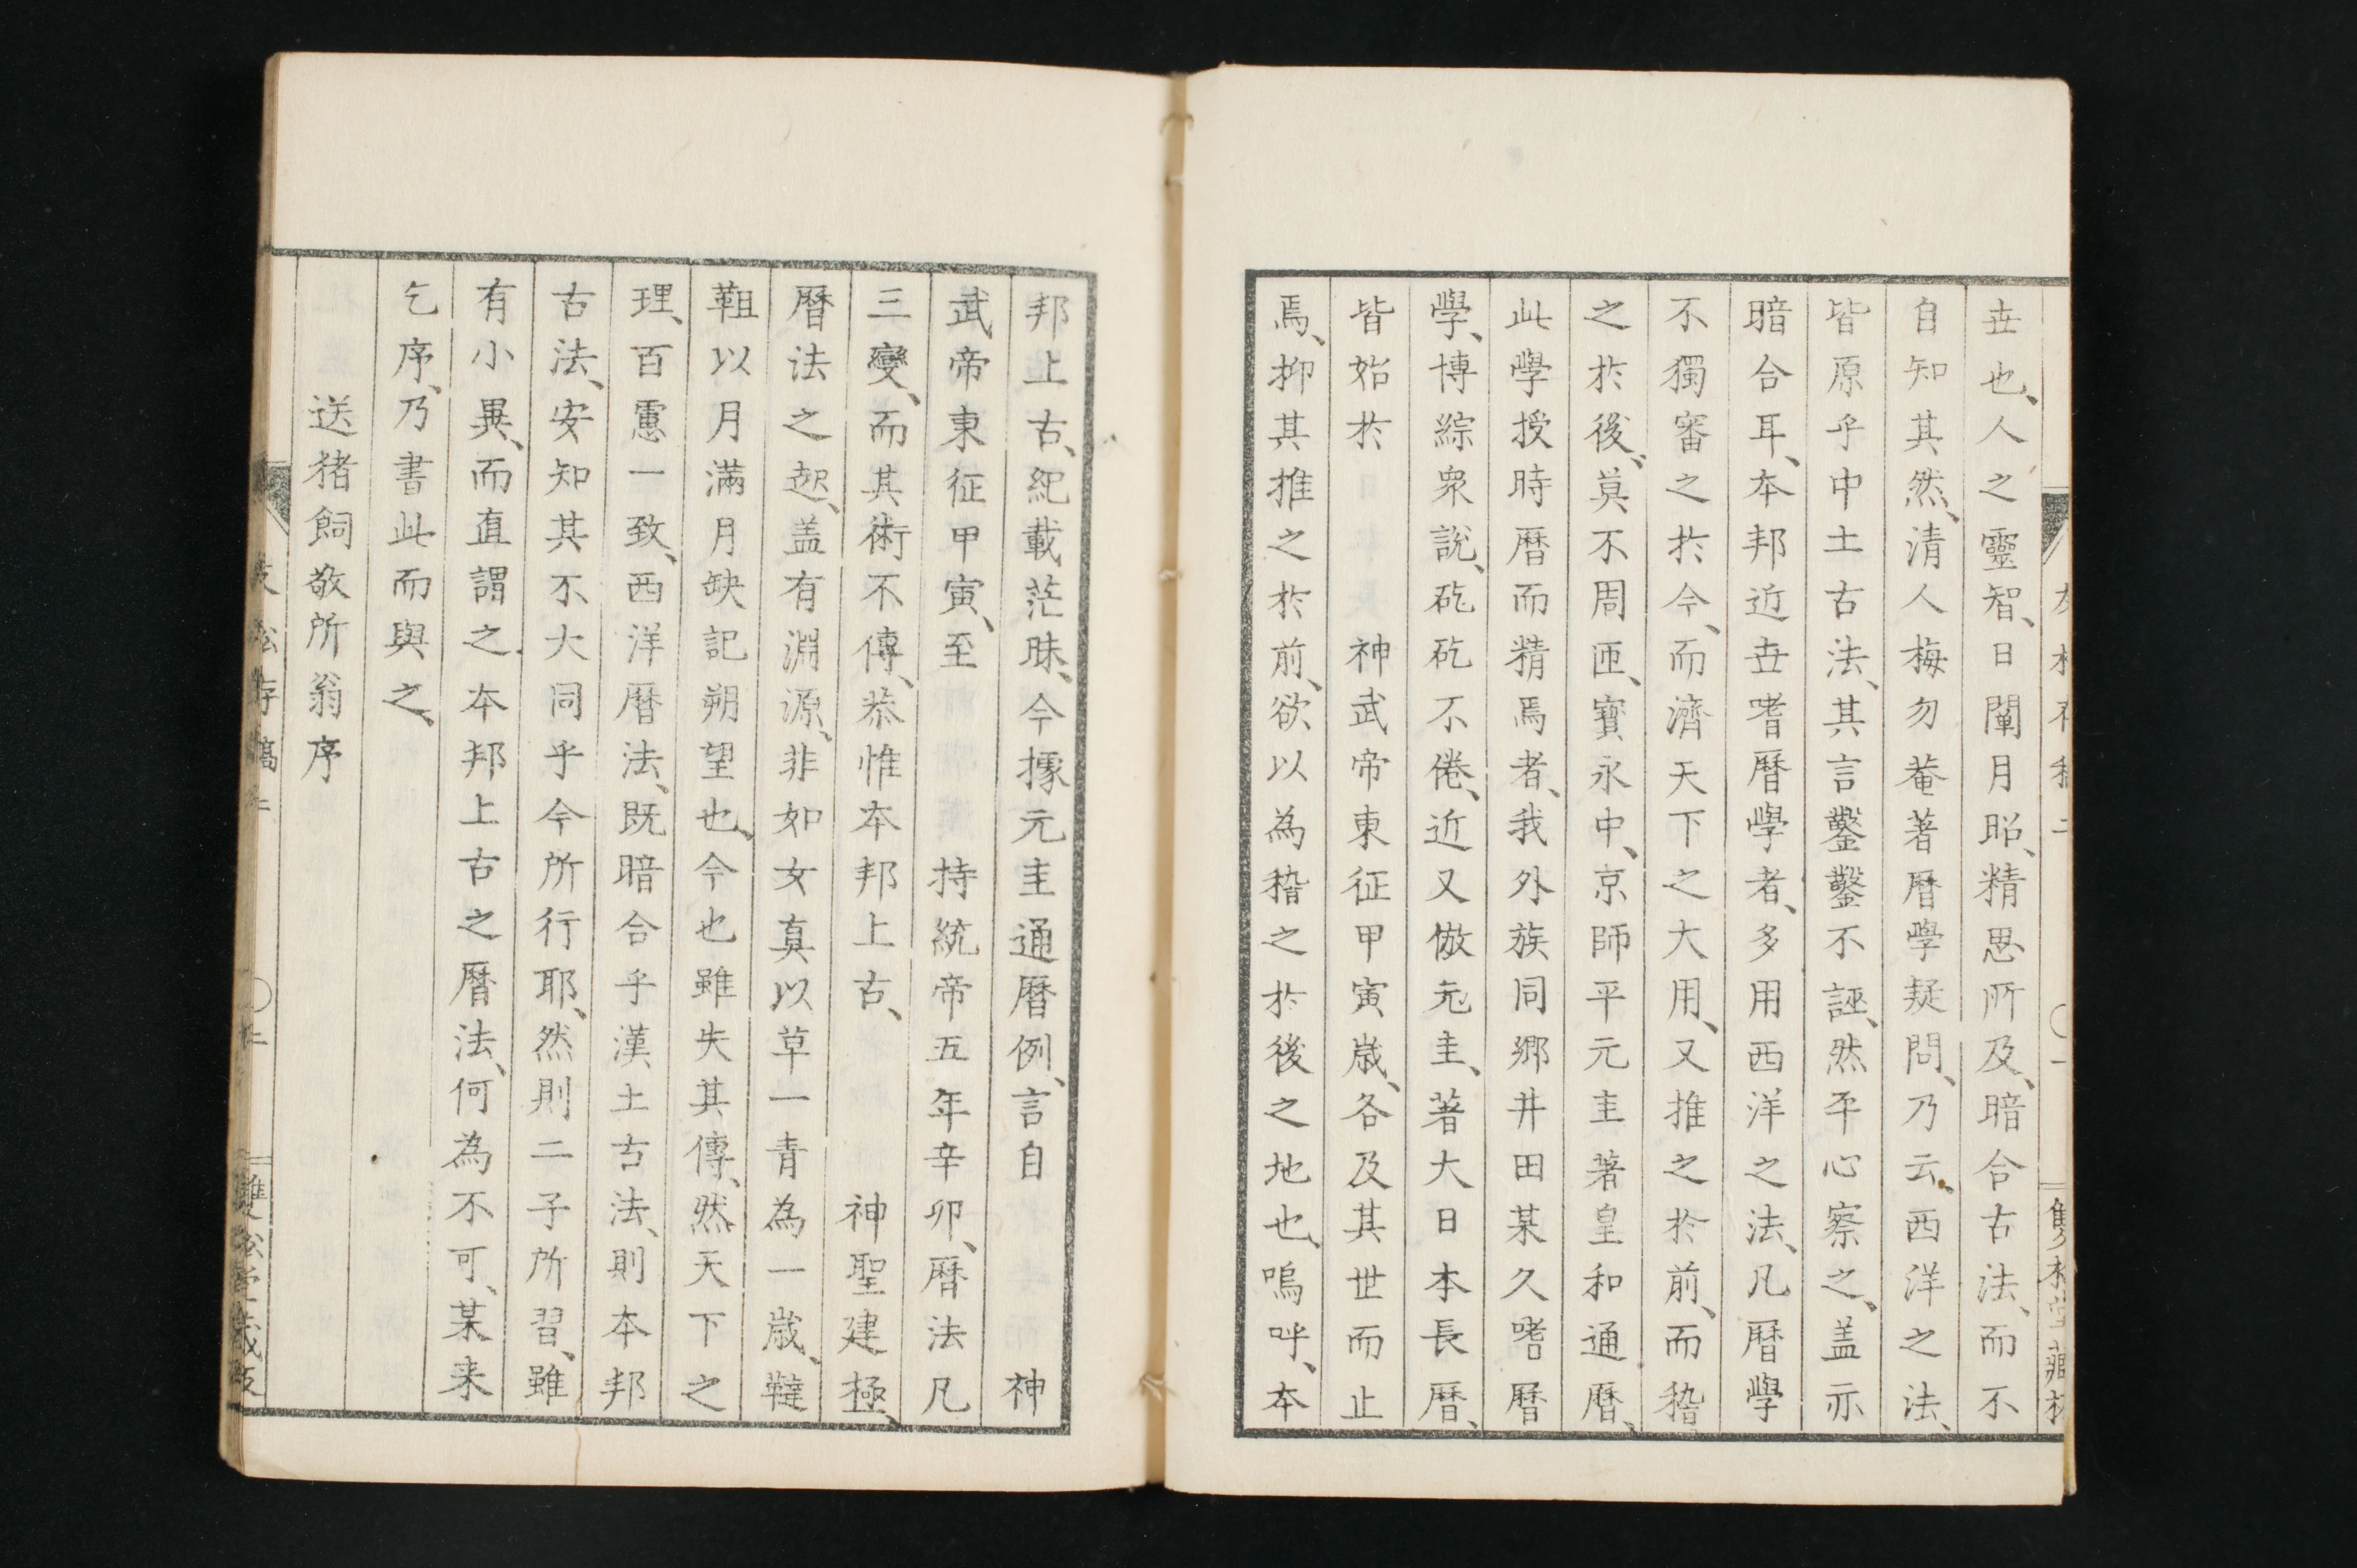 世也、人之靈智、日闡月昭、精思所及、暗合古法、而不
自知其然、清人梅勿菴著曆學疑問、乃云、西洋之法、
皆原乎中土古法、其言鑿鑿不誣、然平心察之、蓋亦
暗合耳、本邦近世嗜曆學者、多用西洋之法、凡曆學
不獨審之於今、而濟天下之大用、又推之於前、而稽
之於後、莫不周匝、寶永中、京師平元圭著皇和通曆、
此學授時曆而精焉者、我外族同鄉井田某久嗜曆
學、博綜衆說、矻矻不倦、近又倣元圭、著大日本長曆、
皆始於　神武帝東征甲寅歲、各及其世而止
焉、抑其推之於前、欲以為稽之於後之地也、嗚呼、本
邦上古、紀載茫昧、今據元圭通曆例、言自　神
武帝東征甲寅、至　持統帝五年辛卯、曆法凡
三變、而其術不傳、恭惟本邦上古、　神聖建極、
曆法之起、盖有淵源、非如女真以草一青為一歲、韃
靼以月滿月缺記朔望也、今也雖失其傳、然天下之
理、百慮一致、西洋曆法、既暗合乎漢土古法、則本邦
古法、安知其不大同乎今所行耶、然則二子所習、雖
有小異、而直謂之本邦上古之曆法、何為不可、某来
乞序、乃書此而與之、
送猪飼敬所翁序